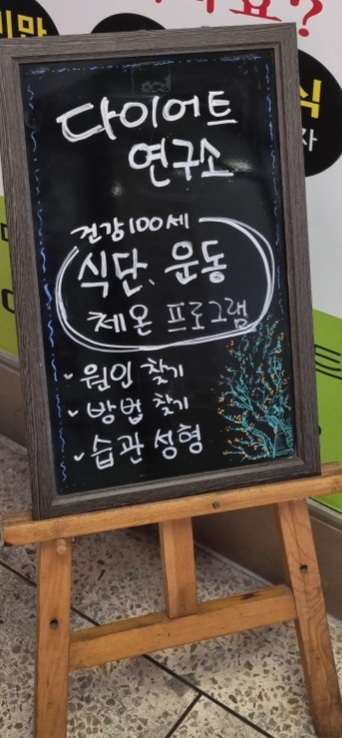 다이어트
연구소
건강100세
식단. 운동
체온 프로그램
원인 찾기
방법 찾기
습관 성형
비만
식
자